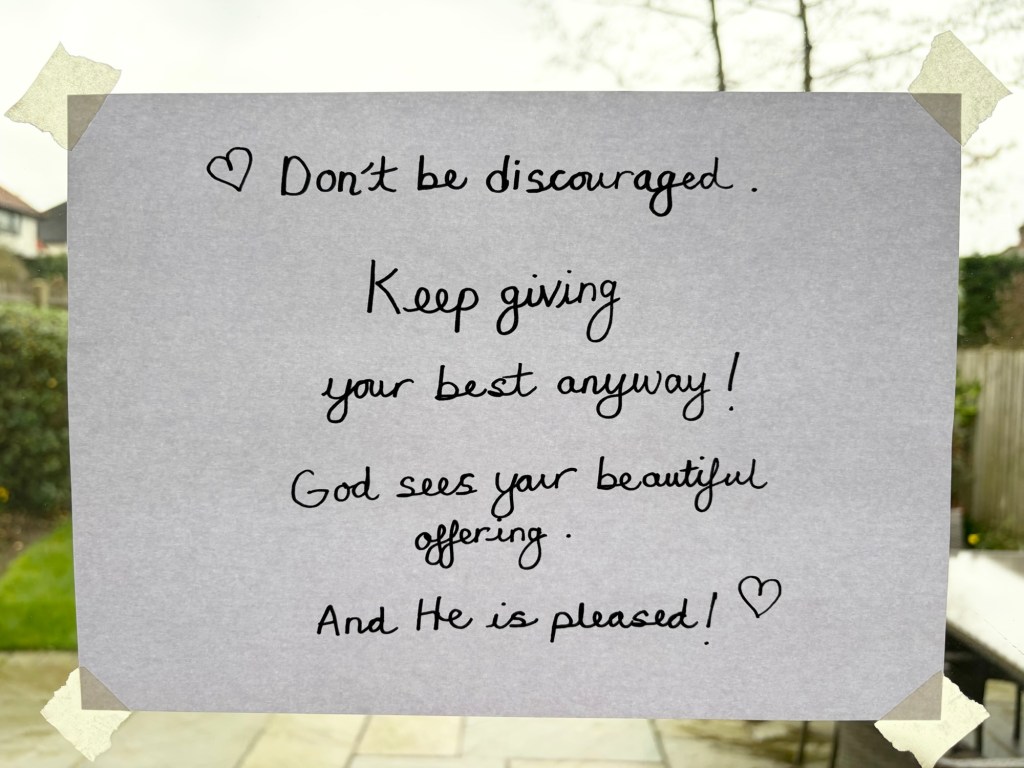 ♡ Don't be discouraged.
Keep giving
your best anyway!
God sees your beautiful
offering.
And He is pleased! ♡